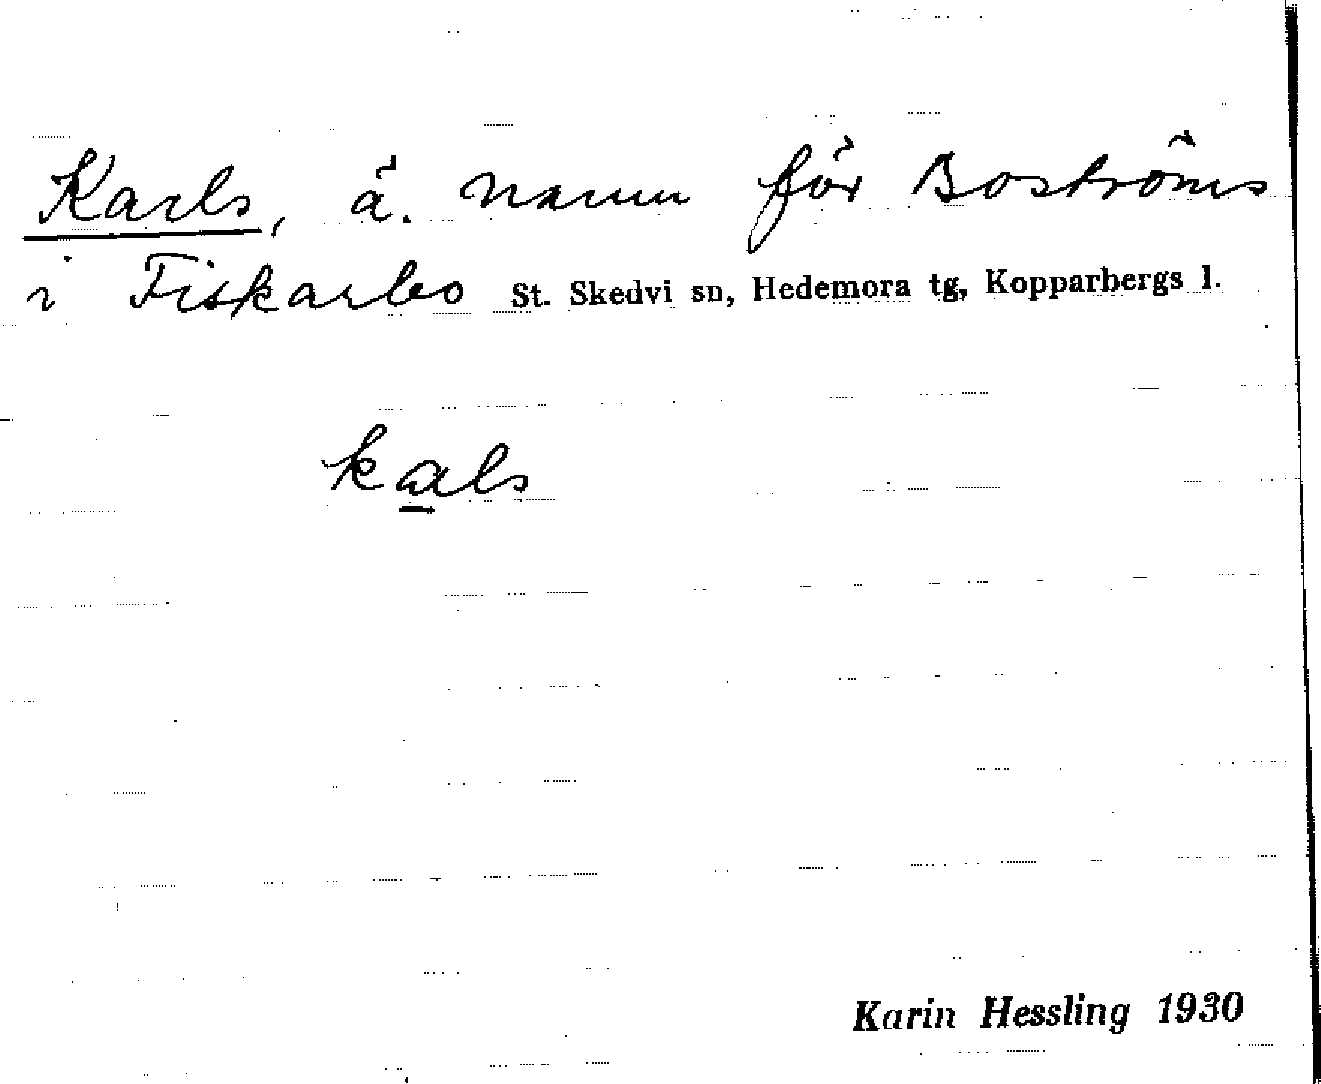 Karls, ä. namn för Boströms
i Fiskarbo St. Skedvi sn, Hedemora tg, Kopparbergs l.
kals
Karin Hessling 1930